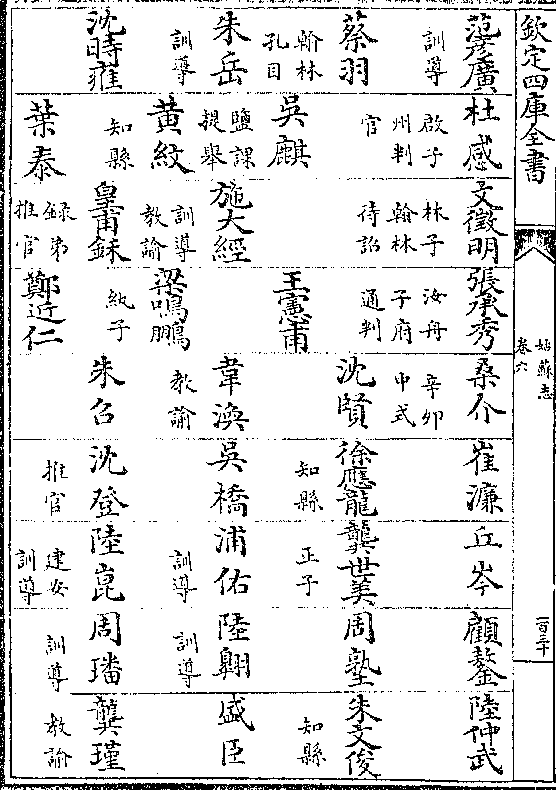 欽定四庫全書
姑蘇志
卷六
百三十
范彥廣
訓導
蔡羽
翰林
孔目
朱岳
訓導
沈時雍
杜感
啟子
州判
官
吳麒
鹽課
提舉
黃紋
知縣
葉泰
文徵明
林子
翰林
待詔
施大經
訓導
教諭
皇甫鉌
録弟
推官
張承秀
汝舟
子府
通判
王憲甫
梁鳴鵬
紋子
鄭近仁
桑介
辛卯
中式
沈賢
韋渙
教諭
朱召
崔濂
徐應龍
知縣
吳橋
沈登
推官
丘岑
龔世美
正子
浦佑
訓導
陸崑
建安
訓導
顧鏊
周塾
陸翱
訓導
周璠
訓導
陸仲武
朱文俊
知縣
盛臣
龔瑾
教諭